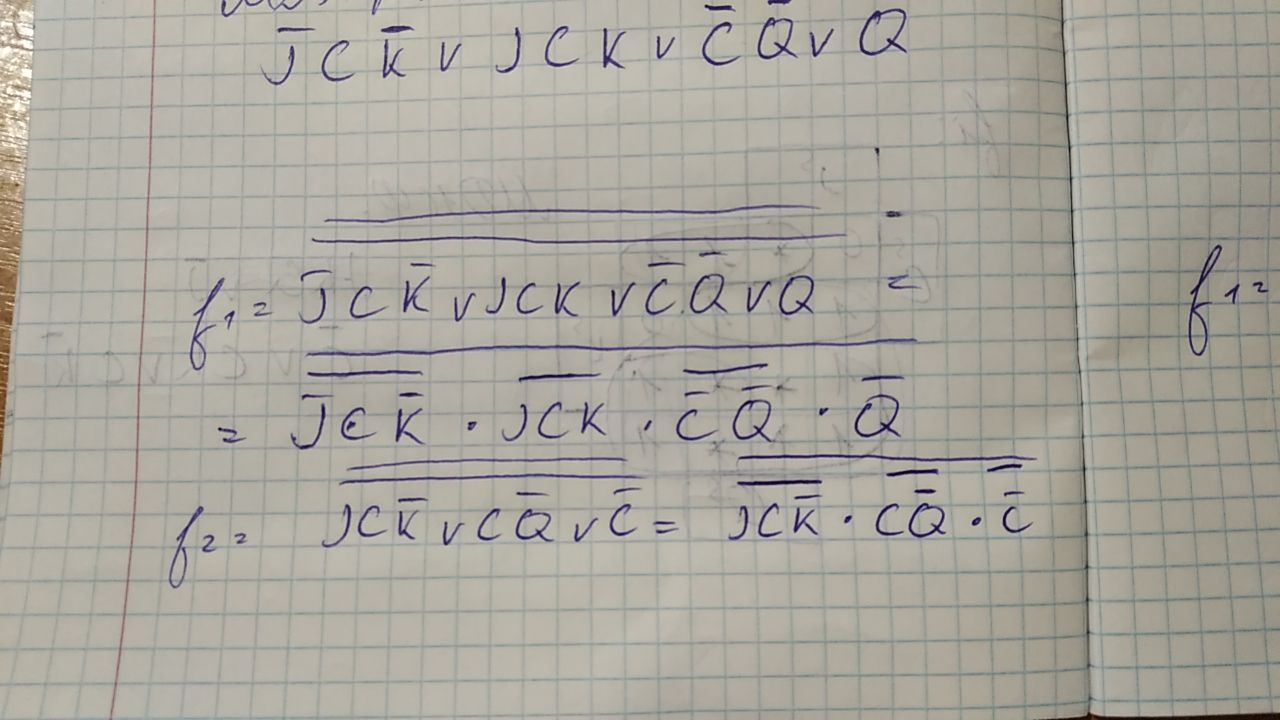 J̅ C K̅ v J C K v C̅ Q̅ v Q
f₁ = J̅ C K̅ v J C K v C̅ Q̅ v Q =
= J̅ C K̅ · J C K · C̅ Q̅ · Q̅
f₂ = J C K̅ v C Q̅ v C̅ = J C K̅ · C Q̅ · C̅
f₁ =